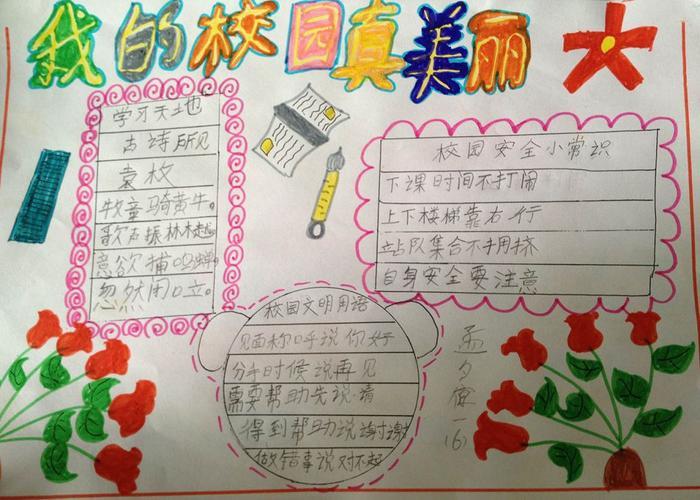 我的校园真美丽
学习天地
古诗所见
袁枚
牧童骑黄牛。
歌声振林樾。
意欲捕鸣蝉。
忽然闭口立。
校园安全小常识
下课时间不打闹
上下楼梯靠右行
站队集合不拥挤
自身安全要注意
校园文明用语
见面称呼说你好
分手时候说再见
需要帮助先说请
得到帮助说谢谢
做错事说对不起
孟夕 一(6)